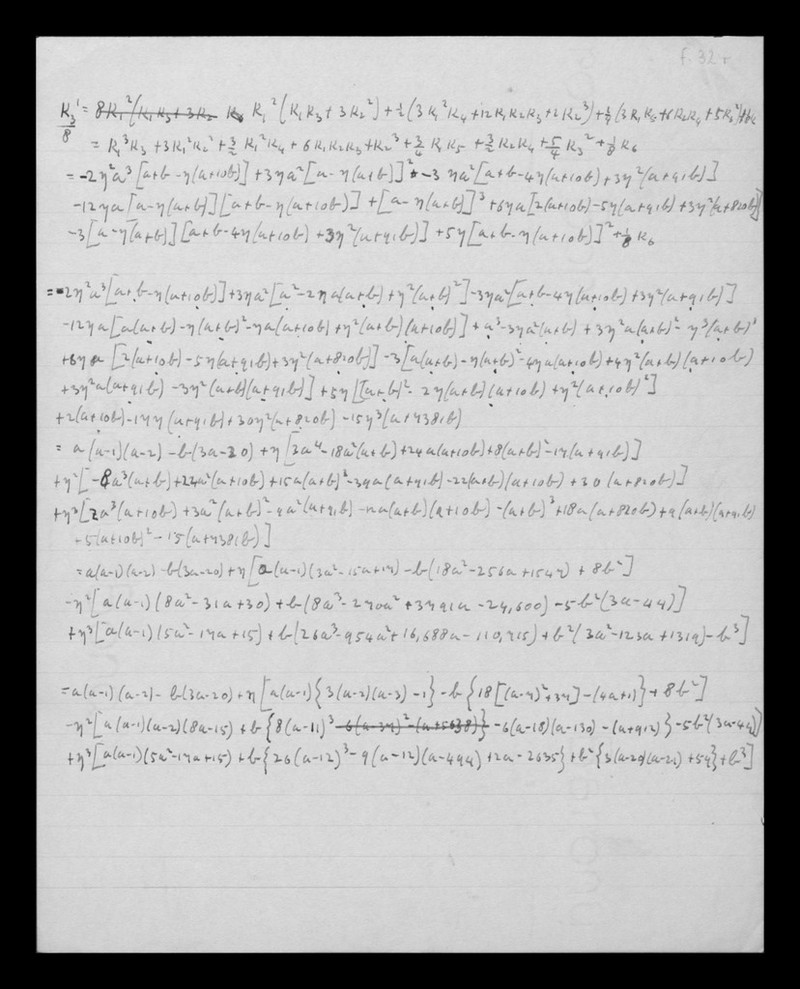 f. 32r
K₃'/8 = K₁²(K₁K₃ + 3K₂²) + ½(3K₁²K₄ + 12K₁K₂K₃ + 2K₂³) + ¼(3K₁K₅ + 6K₂K₄ + 5K₃²) +
= K₁³K₃ + 3K₁²K₂² + 3/2 K₁²K₄ + 6K₁K₂K₃ + K₂³ + 3/4 K₁K₅ + 3/2 K₂K₄ + 5/4 K₃² + 1/8 K₆
= -2η²a³[a+b-η(a+10b)] + 3ηa²[a-η(a+b)]² - 3ηa²[a+b-4η(a+10b)+3η²(a+91b)]
-12ηa[a-η(a+b)][a+b-η(a+10b)] + [a-η(a+b)]³ + 6ηa[2(a+10b)-5η(a+91b)+3η²(a+820b)]
-3[a-η(a+b)][a+b-4η(a+10b)+3η²(a+91b)] + 5η[a+b-η(a+10b)]² + 1/8 K₆
= -2η²a³[a+b-η(a+10b)] + 3ηa²[a²-2ηa(a+b)+η²(a+b)²] - 3ηa²[a+b-4η(a+10b)+3η²(a+91b)]
-12ηa[a(a+b)-η(a+b)²-ηa(a+10b)+η²(a+b)(a+10b)] + a³-3ηa²(a+b)+3η²a(a+b)²-η³(a+b)³
+6ηa[2(a+10b)-5η(a+91b)+3η²(a+820b)] - 3[a(a+b)-η(a+b)²-4ηa(a+10b)+4η²(a+b)(a+10b)
+3η²a(a+91b)-3η³(a+b)(a+91b)] + 5η[(a+b)²-2η(a+b)(a+10b)+η²(a+10b)²]
+2(a+10b)-17η(a+91b)+30η²(a+820b)-15η³(a+7381b)
= a(a-1)(a-2)-b(3a-20)+η[3a⁴-18a²(a+b)+24a(a+10b)+8(a+b)²-17(a+91b)]
+η²[-8a³(a+b)+24a²(a+10b)+15a(a+b)²-39a(a+91b)-22(a+b)(a+10b)+30(a+820b)]
+η³[2a³(a+10b)+3a²(a+b)²-9a²(a+91b)-12a(a+b)(a+10b)-(a+b)³+18a(a+820b)+9(a+b)(a+91b)
+5(a+10b)²-15(a+7381b)]
= a(a-1)(a-2)-b(3a-20)+η[a(a-1)(3a²-15a+17)-b(18a²-256a+1547)+8b²]
-η²[a(a-1)(8a²-31a+30)+b(8a³-270a²+3791a-24,600)-5b²(3a-44)]
+η³[a(a-1)(5a²-17a+15)+b(26a³-954a²+16,688a-110,715)+b²(3a²-123a+1319)-b³]
= a(a-1)(a-2)-b(3a-20)+η[a(a-1){3(a-2)(a-3)-1}-b{18[(a-7)²+37]-(4a+1)}+8b²]
-η²[a(a-1)(a-2)(8a-15)+b{8(a-11)³-6(a-18)(a-130)-(a+912)}-5b²(3a-44)]
+η³[a(a-1)(5a²-17a+15)+b{26(a-12)³-9(a-12)(a-494)+2a-2635}+b²{3(a-20)(a-21)+59}+b³]